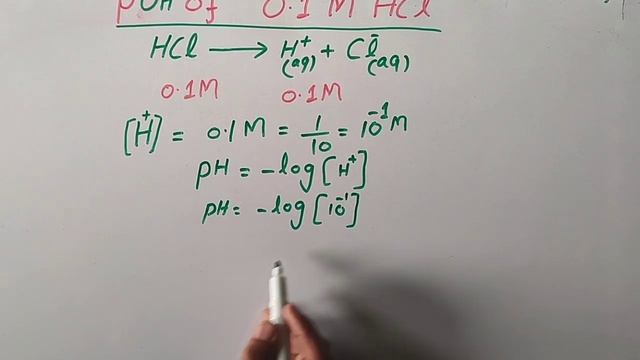 pOH of 0.1 M HCl
HCl ⟶ H⁺(aq) + Cl⁻(aq)
0.1M 0.1M
[H⁺] = 0.1M = 1/10 = 10⁻¹M
pH = -log[H⁺]
pH = -log[10⁻¹]